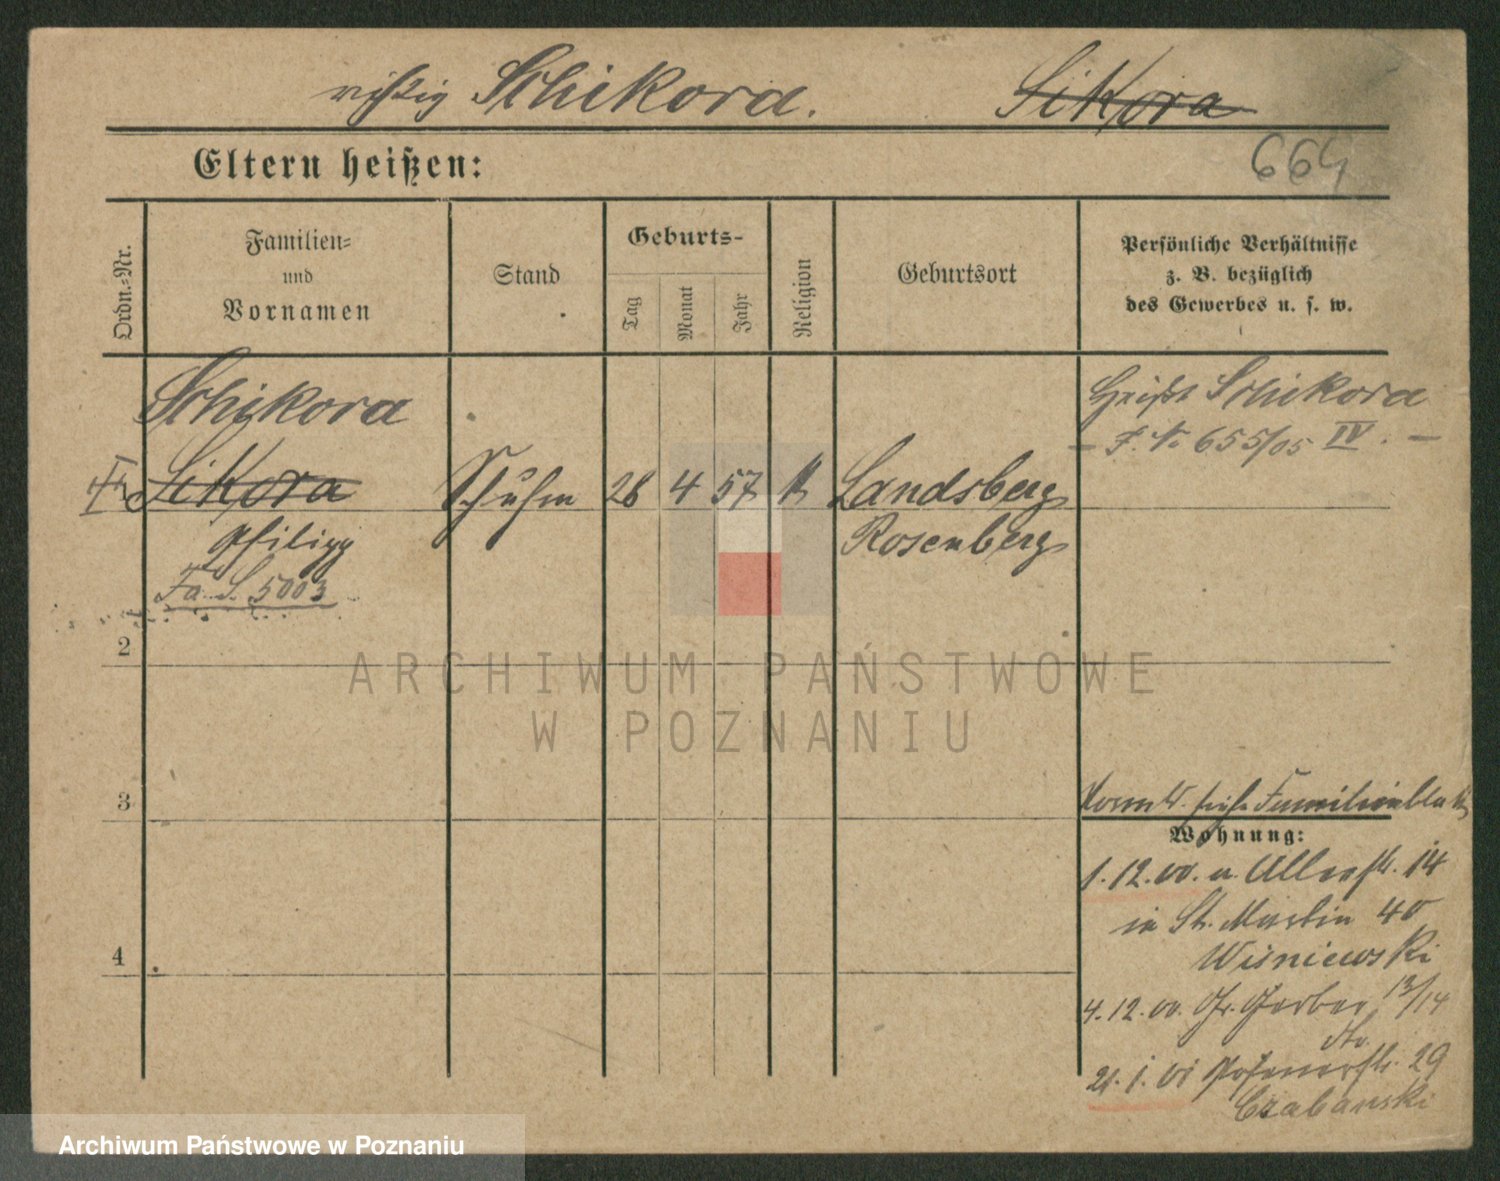 richtig Schikora. ~~Sikora~~
Eltern heißen:
664
Ordn.-Nr.
Familien-
und
Vornamen
Stand
Geburts-
Tag
Monat
Jahr
Religion
Geburtsort
Persönliche Verhältnisse
z. B. bezüglich
des Gewerbes u. s. w.
Schikora
~~Sikora~~ Schuhm 28 4 57 k Landsberg
Philipp Rosenberg
Fa. S. 5003
Heißt Schikora
- J. No 655/05 IV. -
2
3
4
siehe Familienblatt
Wohnung:
1. 12. 00. u. Allerstr. 14
in St. Martin 40
Wisniewski
4. 12. 00. Gr. Gerber 13/14
str.
21. 1. 01 Posenerstr. 29
Czabanski
ARCHIWUM PAŃSTWOWE
W POZNANIU
Archiwum Państwowe w Poznaniu